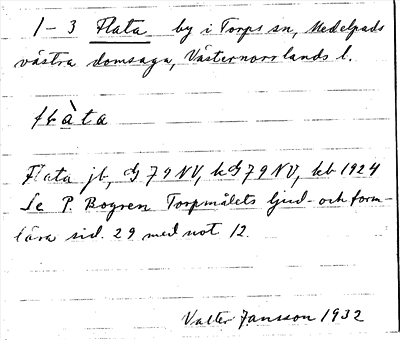 1-3 Flata by i Torps sn, Medelpads
västra domsaga, Västernorrlands l.
flàta
Flata jb, G79NV, kG79NV, kb 1924
Se P. Bogren Torpmålets ljud- och form-
lära sid. 29 med not 12.
Valter Jansson 1932